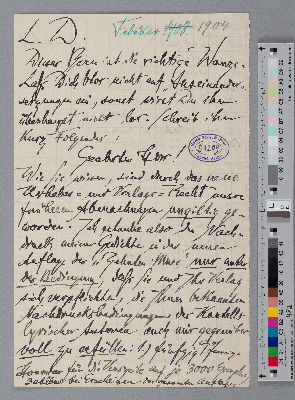 L. D.
Februar 1908. 1904
Dieser Bern ist die richtige Wanze.
Laß Dich aber nicht auf Auseinander-
setzungen ein, sonst wirst Du ihn
überhaupt nicht los. Schreib ihm
kurz Folgendes:
Geehrter Herr!
Wie Sie wissen, sind durch das neue
Urheber- und Verlags-Recht unsre
früheren Abmachungen ungiltig ge-
worden. Ich gestatte also den Nach-
druck meiner Gedichte in der neuen
Auflage der nur unter
der Bedingung, daß Sie und Ihr Verlag
sich verpflichten, die Ihnen bekannten
Nachdrucksbedingungen des Kartells
lyrischer Autoren auch mir gegenüber
voll zu erfüllen: 1) fünfzig Pfennige
Honorar für die Verszeile auf je 3000 Exemplare
zahlbar bei Erscheinen